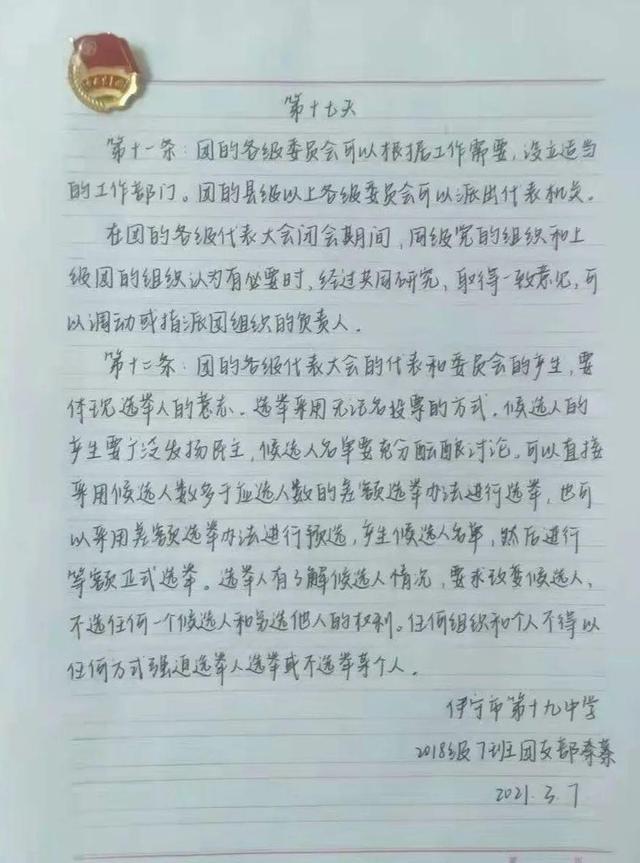 第十七天
第十一条:团的各级委员会可以根据工作需要,设立适当
的工作部门。团的县级以上各级委员会可以派出代表机关。
在团的各级代表大会闭会期间,同级党的组织和上
级团的组织认为有必要时,经过共同研究,取得一致意见,可
以调动或指派团组织的负责人.
第十二条:团的各级代表大会的代表和委员会的产生,要
体现选举人的意志.选举采用无记名投票的方式.候选人的
产生要广泛发扬民主,候选人名单要充分酝酿讨论。可以直接
采用候选人数多于应选人数的差额选举办法进行选举,也可
以采用差额选举办法进行预选,产生候选人名单,然后进行
等额正式选举。选举人有了解候选人情况,要求改变候选人,
不选任何一个候选人和另选他人的权利。任何组织和个人不得以
任何方式强迫选举人选举或不选举某个人.
伊宁市第十九中学
2018级7班团支部
2021.3.7